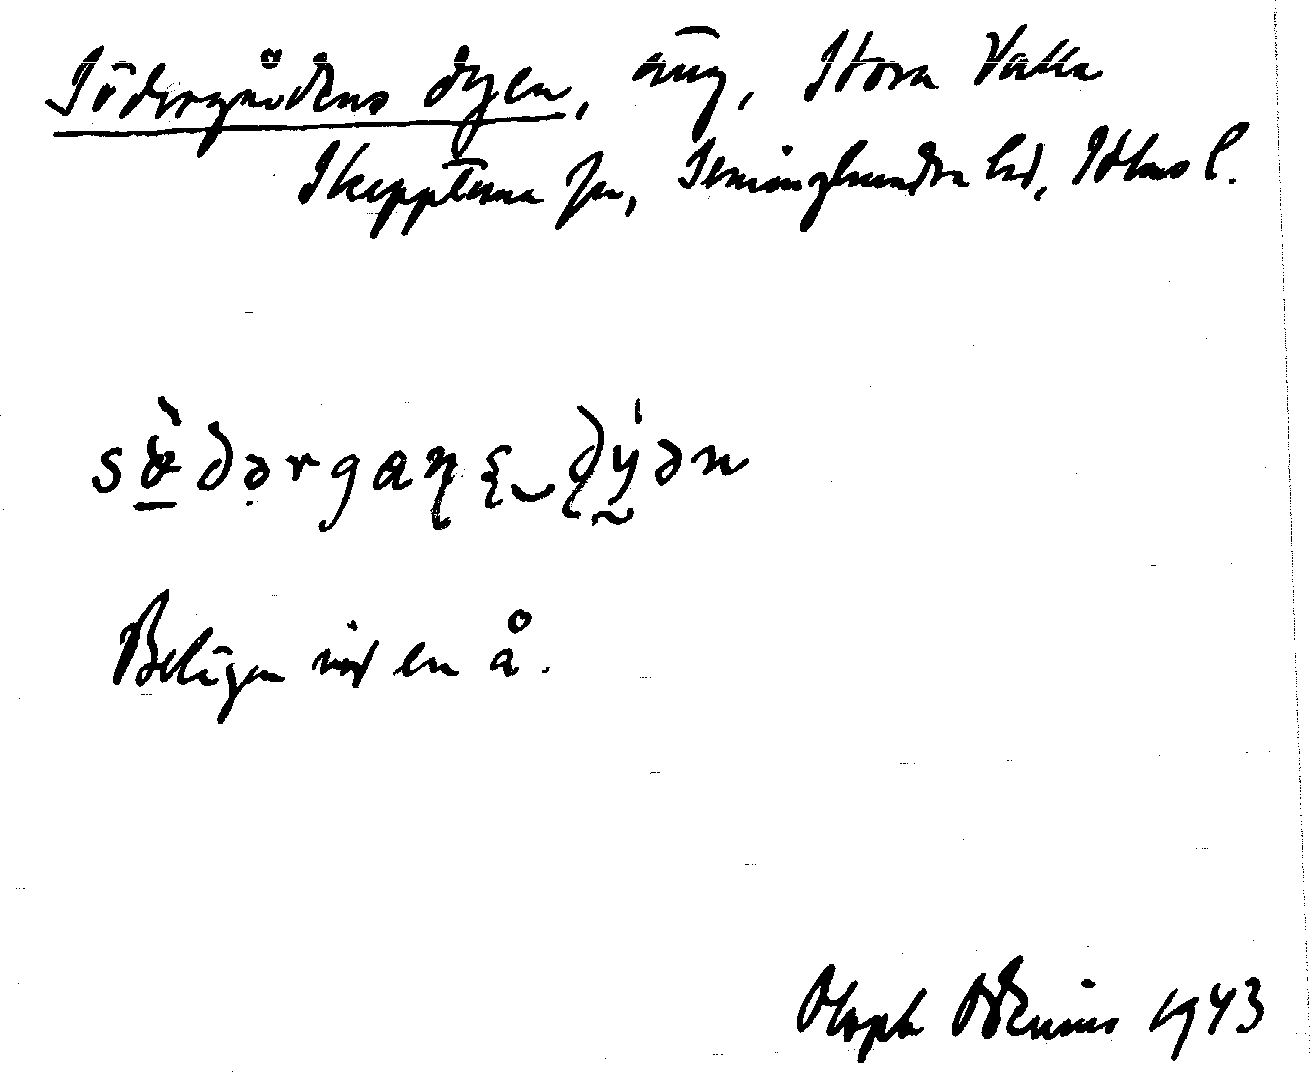 Södergårdens dyen, äng, Stora Valla
Skepptuna sn, Seminghundra hd, Sthms l.
sö̀dərgaɳʂ‿dýən
Belägen vid en å.
Oloph Odenius 1943